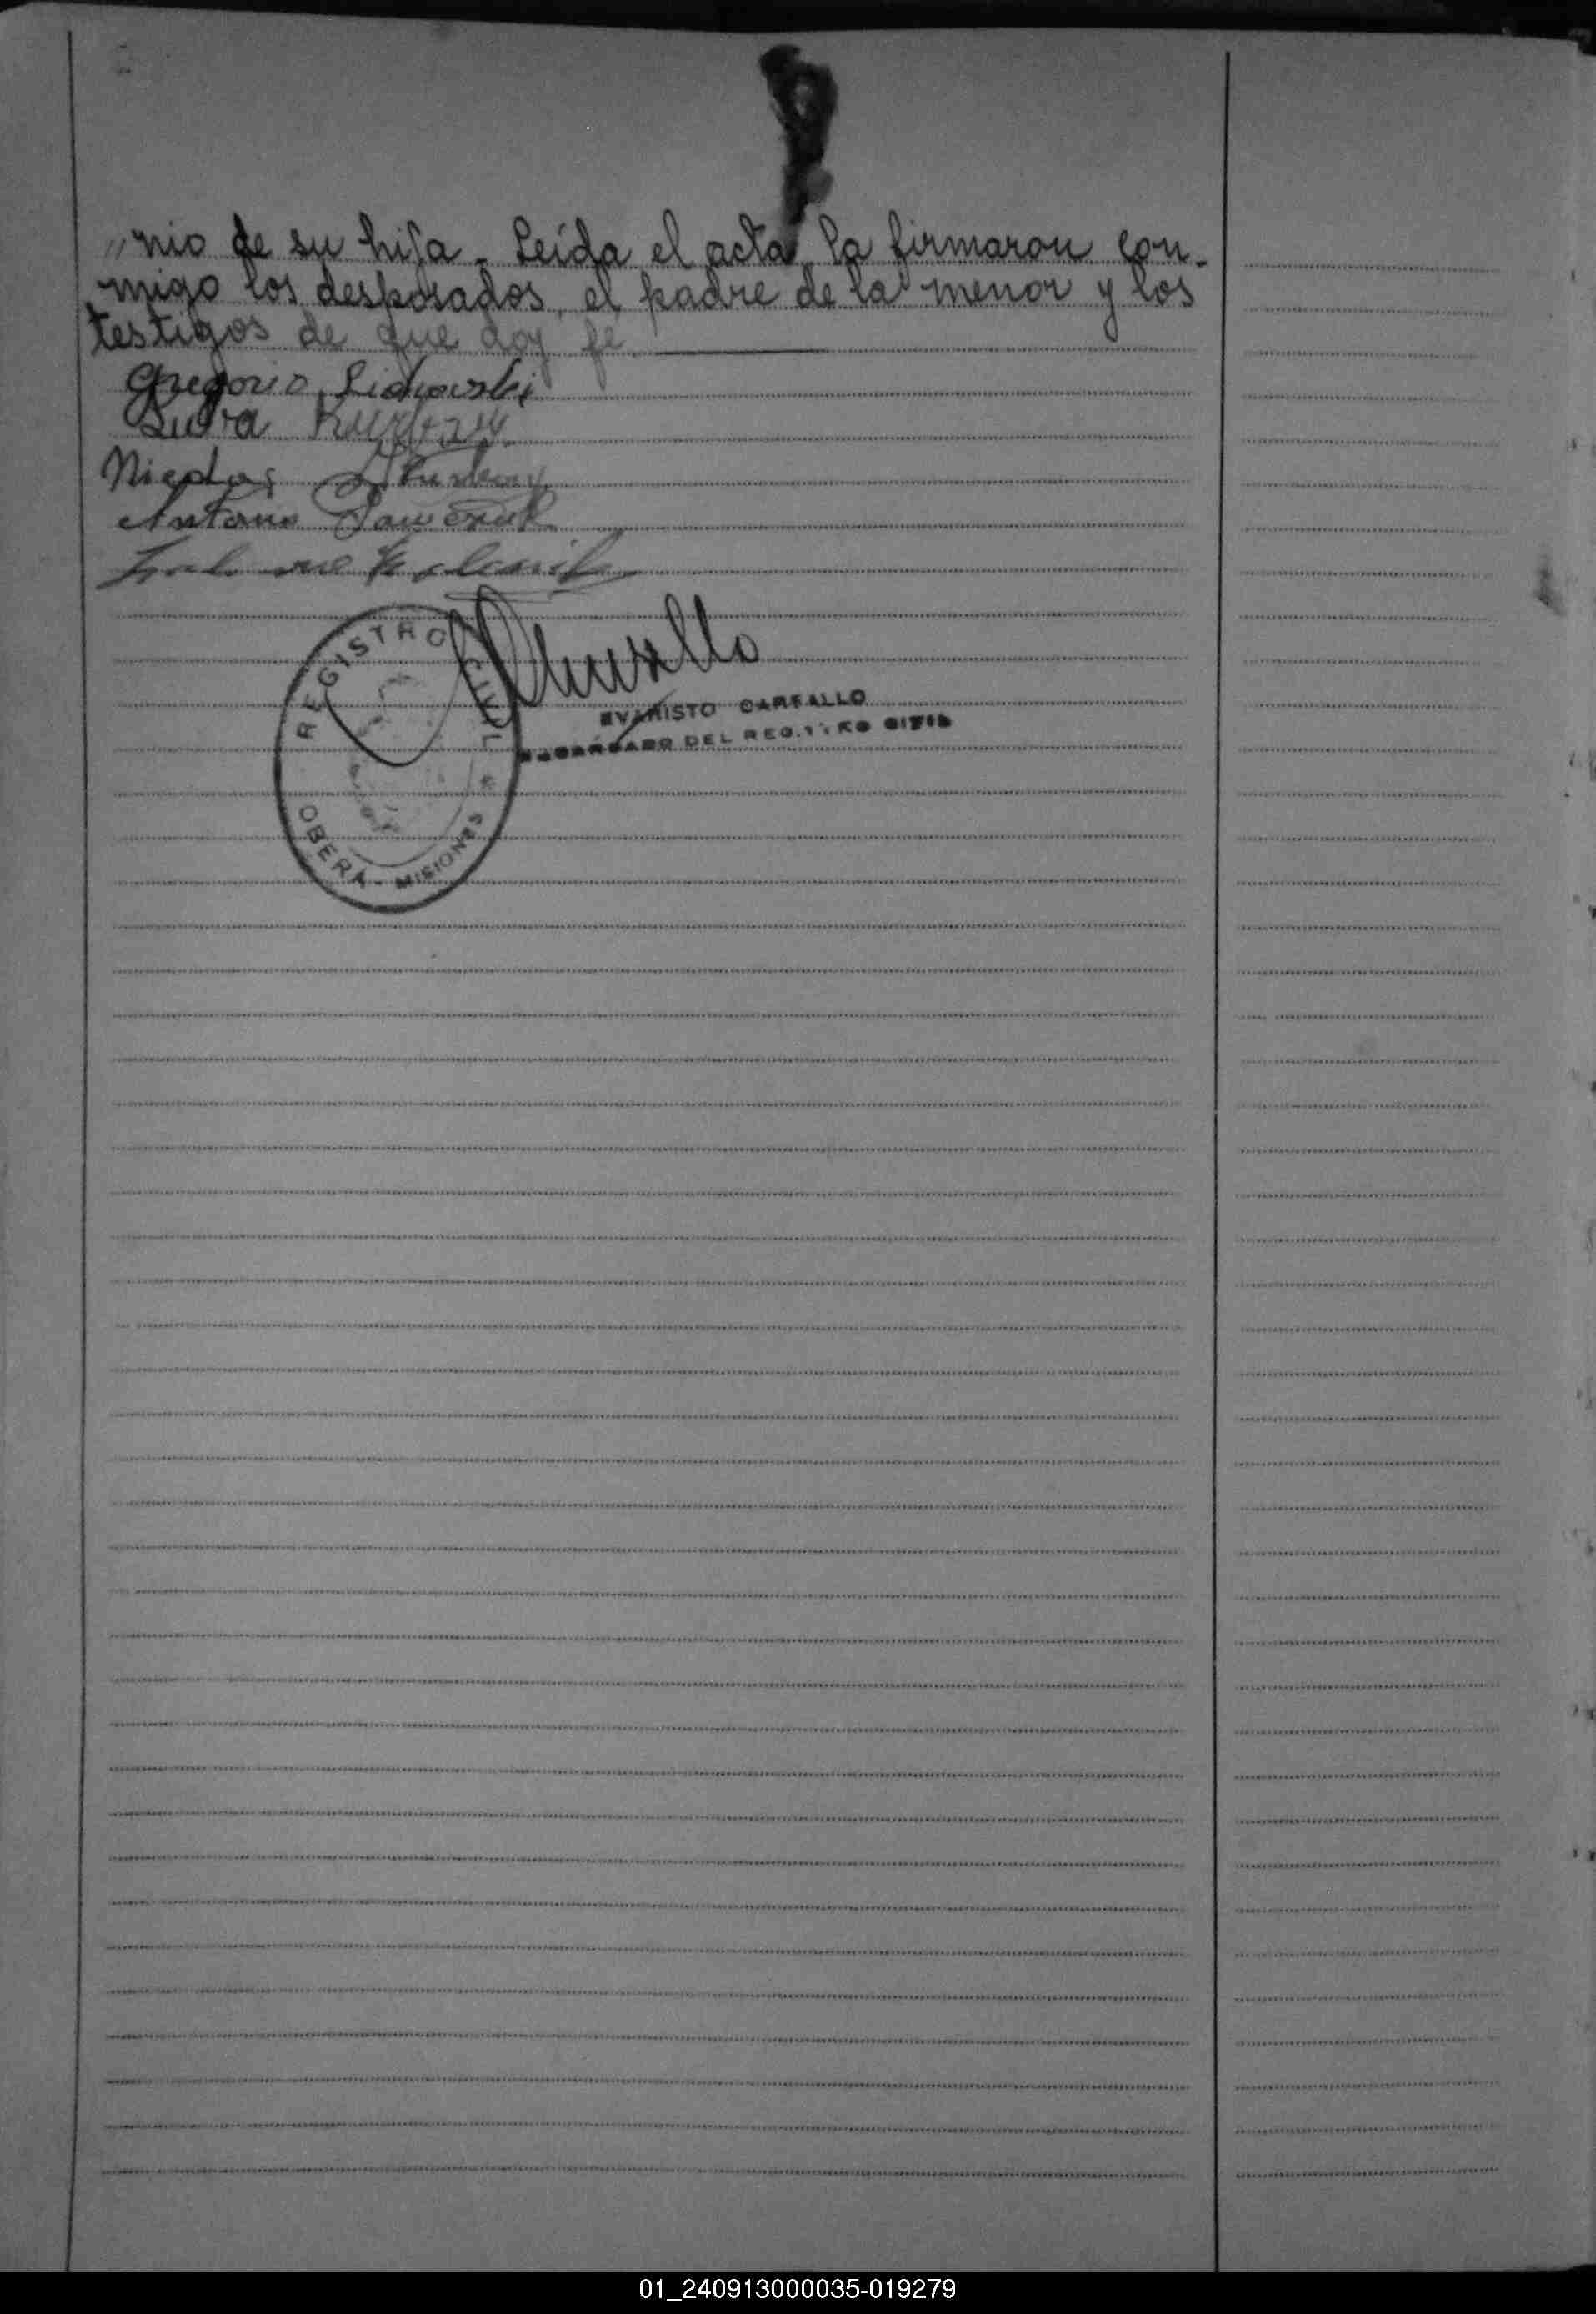 "nio de su hija - Leída el acta la firmaron con-
migo los desposados, el padre de la menor y los
testigos de que doy fe.
Gregorio
Luba
Nicolas
Antonio Pawczuk
REGISTRO CIVIL
OBERA - MISIONES
EVARISTO CARFALLO
ENCARGADO DEL REGISTRO CIVIL
01_240913000035-019279